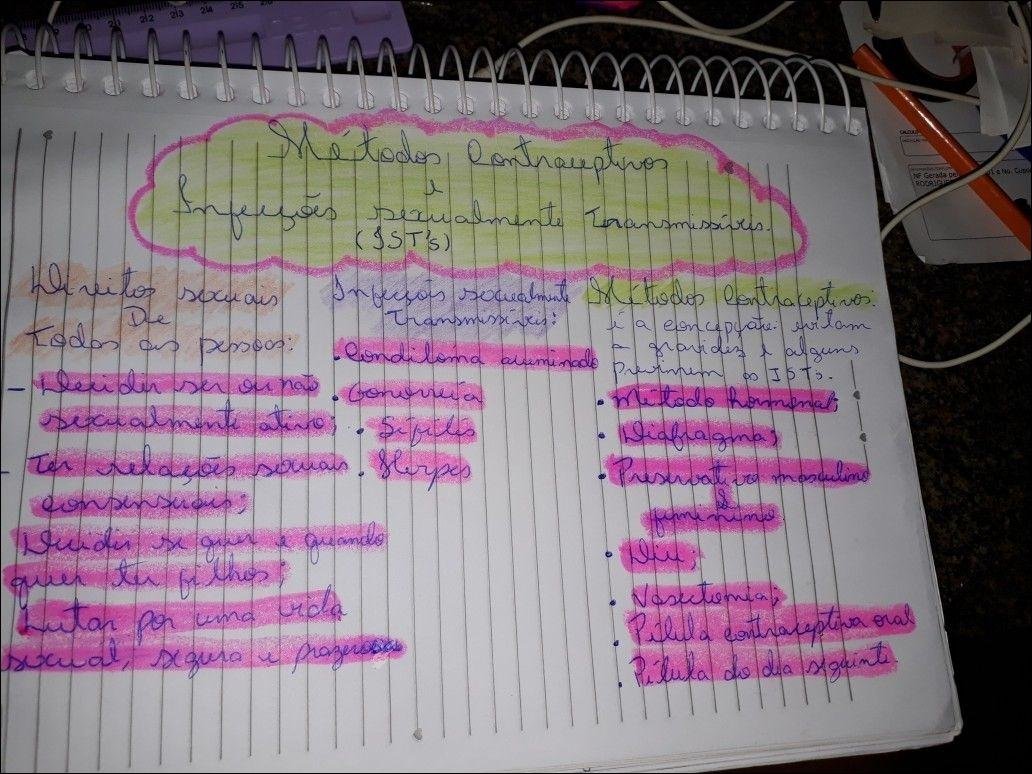 Métodos Contraceptivos
e
Infecções sexualmente Transmissíveis.
(IST's)
Direitos sexuais
De
Todos as pessoas:
- Decidir ser ou não
sexualmente ativo;
- Ter relações sexuais
consensuais;
Decidir se quer e quando
quer ter filhos;
Lutar por uma vida
sexual, segura e prazerosa
Infecções sexualmente
Transmissíveis:
• Condiloma acuminado
• Gonorreia
• Sífilis
• Herpes
Métodos Contraceptivos:
é a concepção: evitam
a gravidez e alguns
previnem as ISTs.
• Método hormonal;
• Diafragma;
• Preservativo masculino
&
feminino.
• Diu;
• Vasectomia;
• Pílula contraceptiva oral
• Pílula do dia seguinte.
20 21 22 23 24 25
NF Gerada pe
RODRIGUE